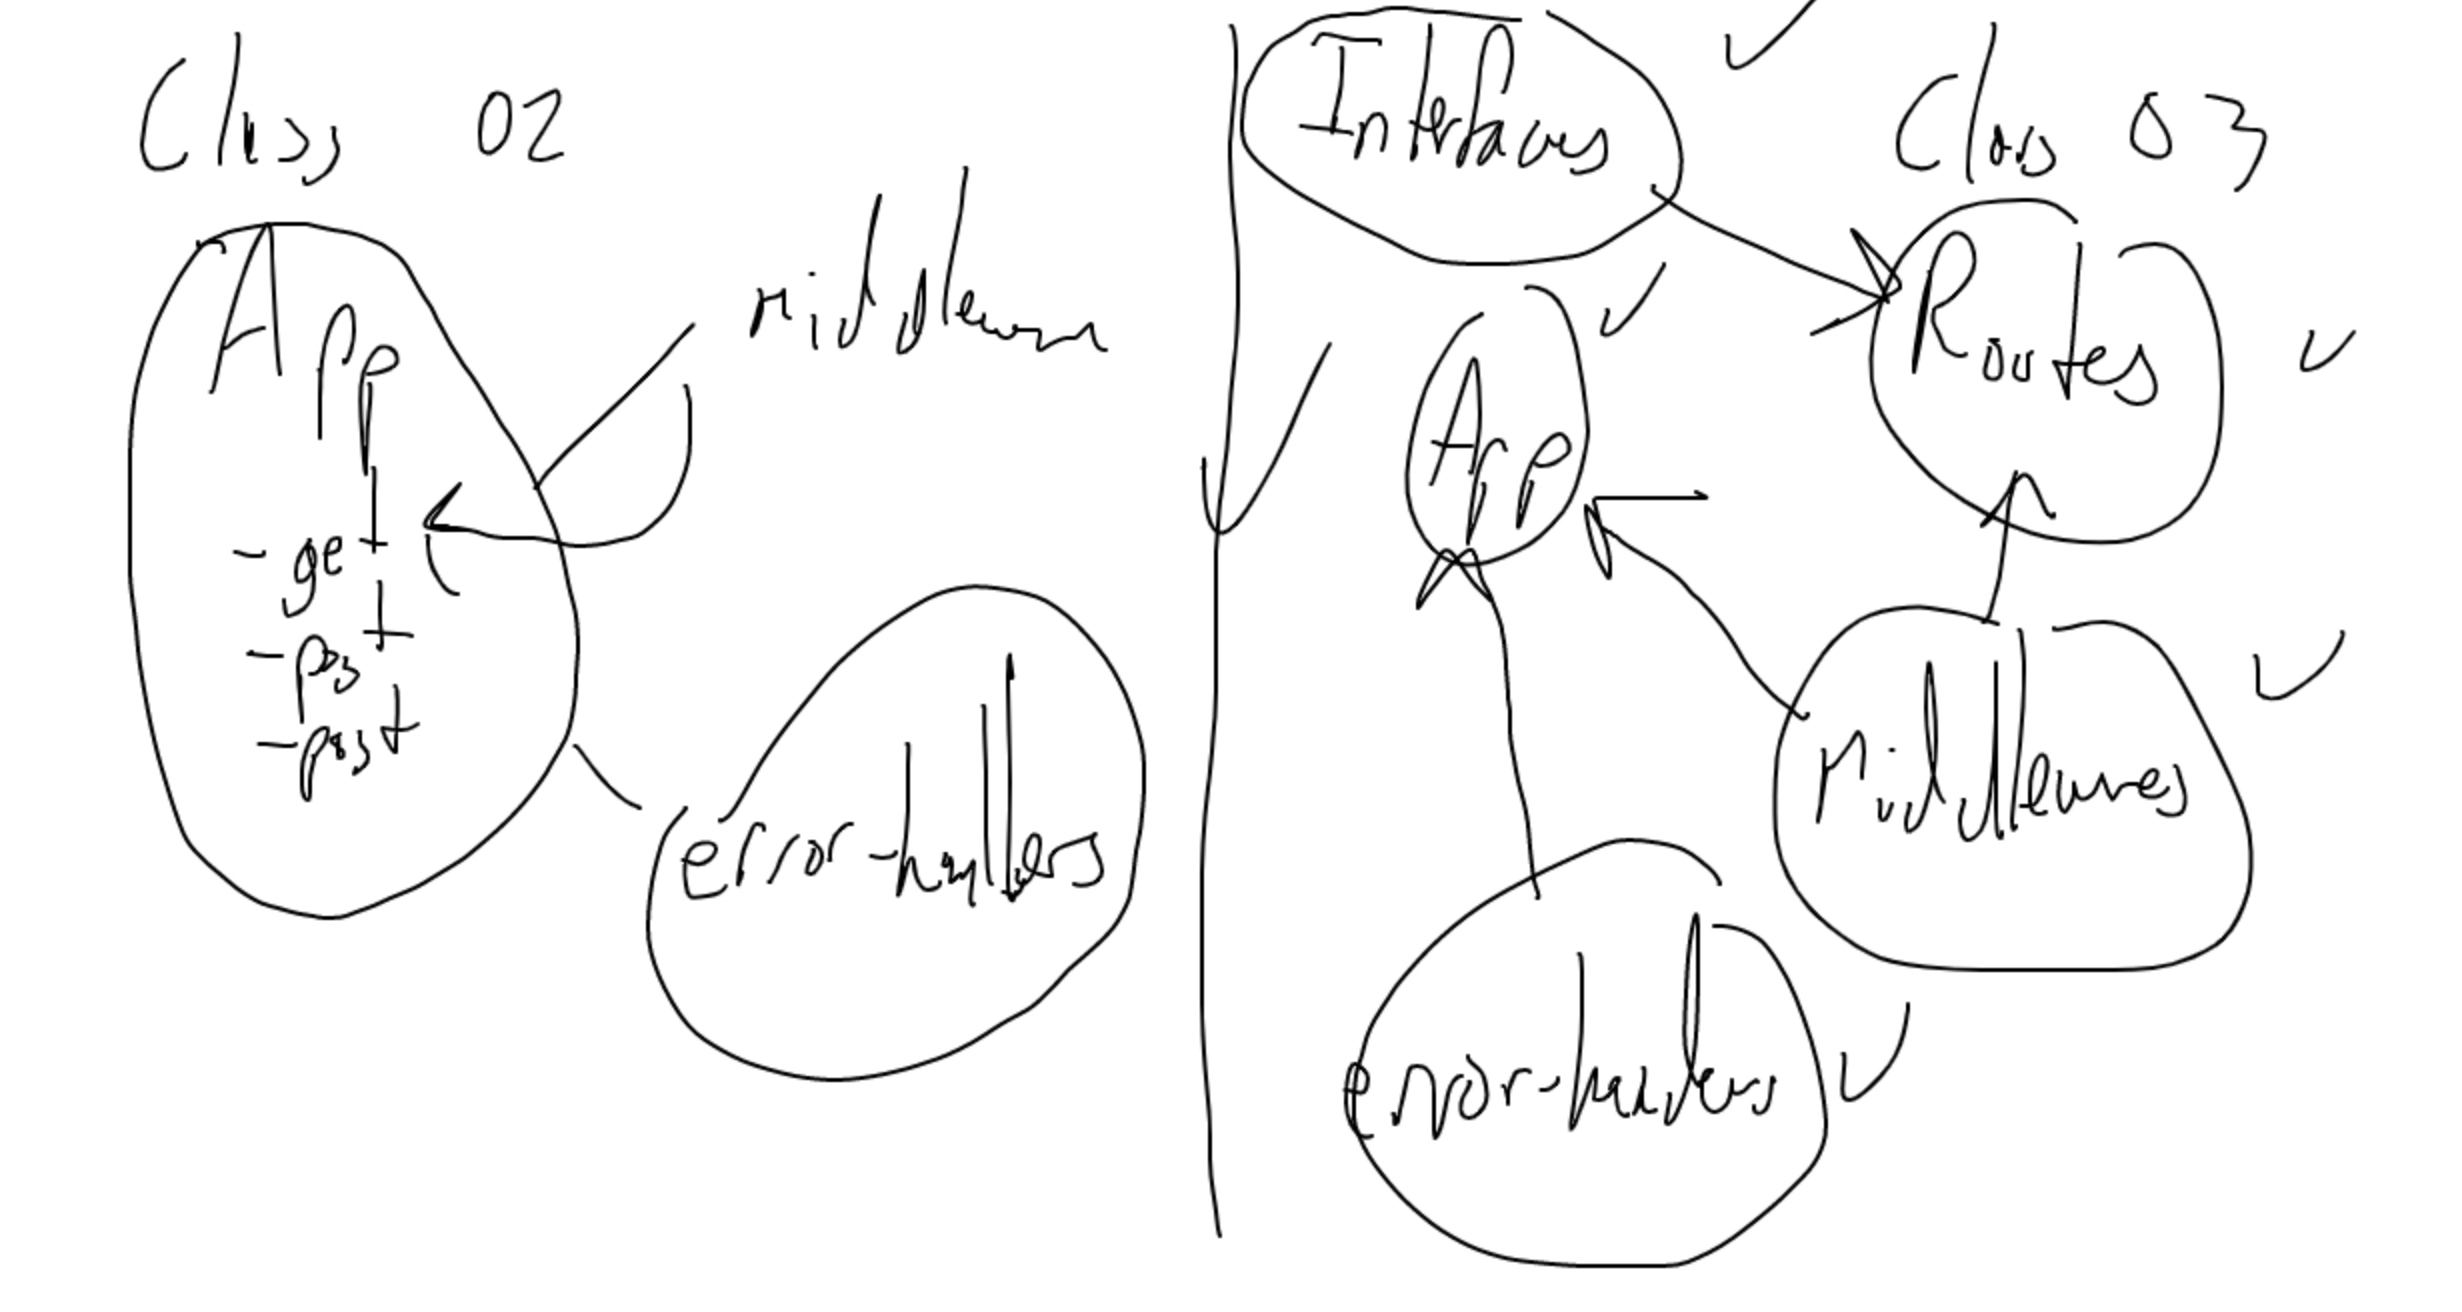 Class 02
App
- get
- pos
- post
middleware
error-handlers
Interfaces
Class 03
Routes
App
Middlewares
error-handlers